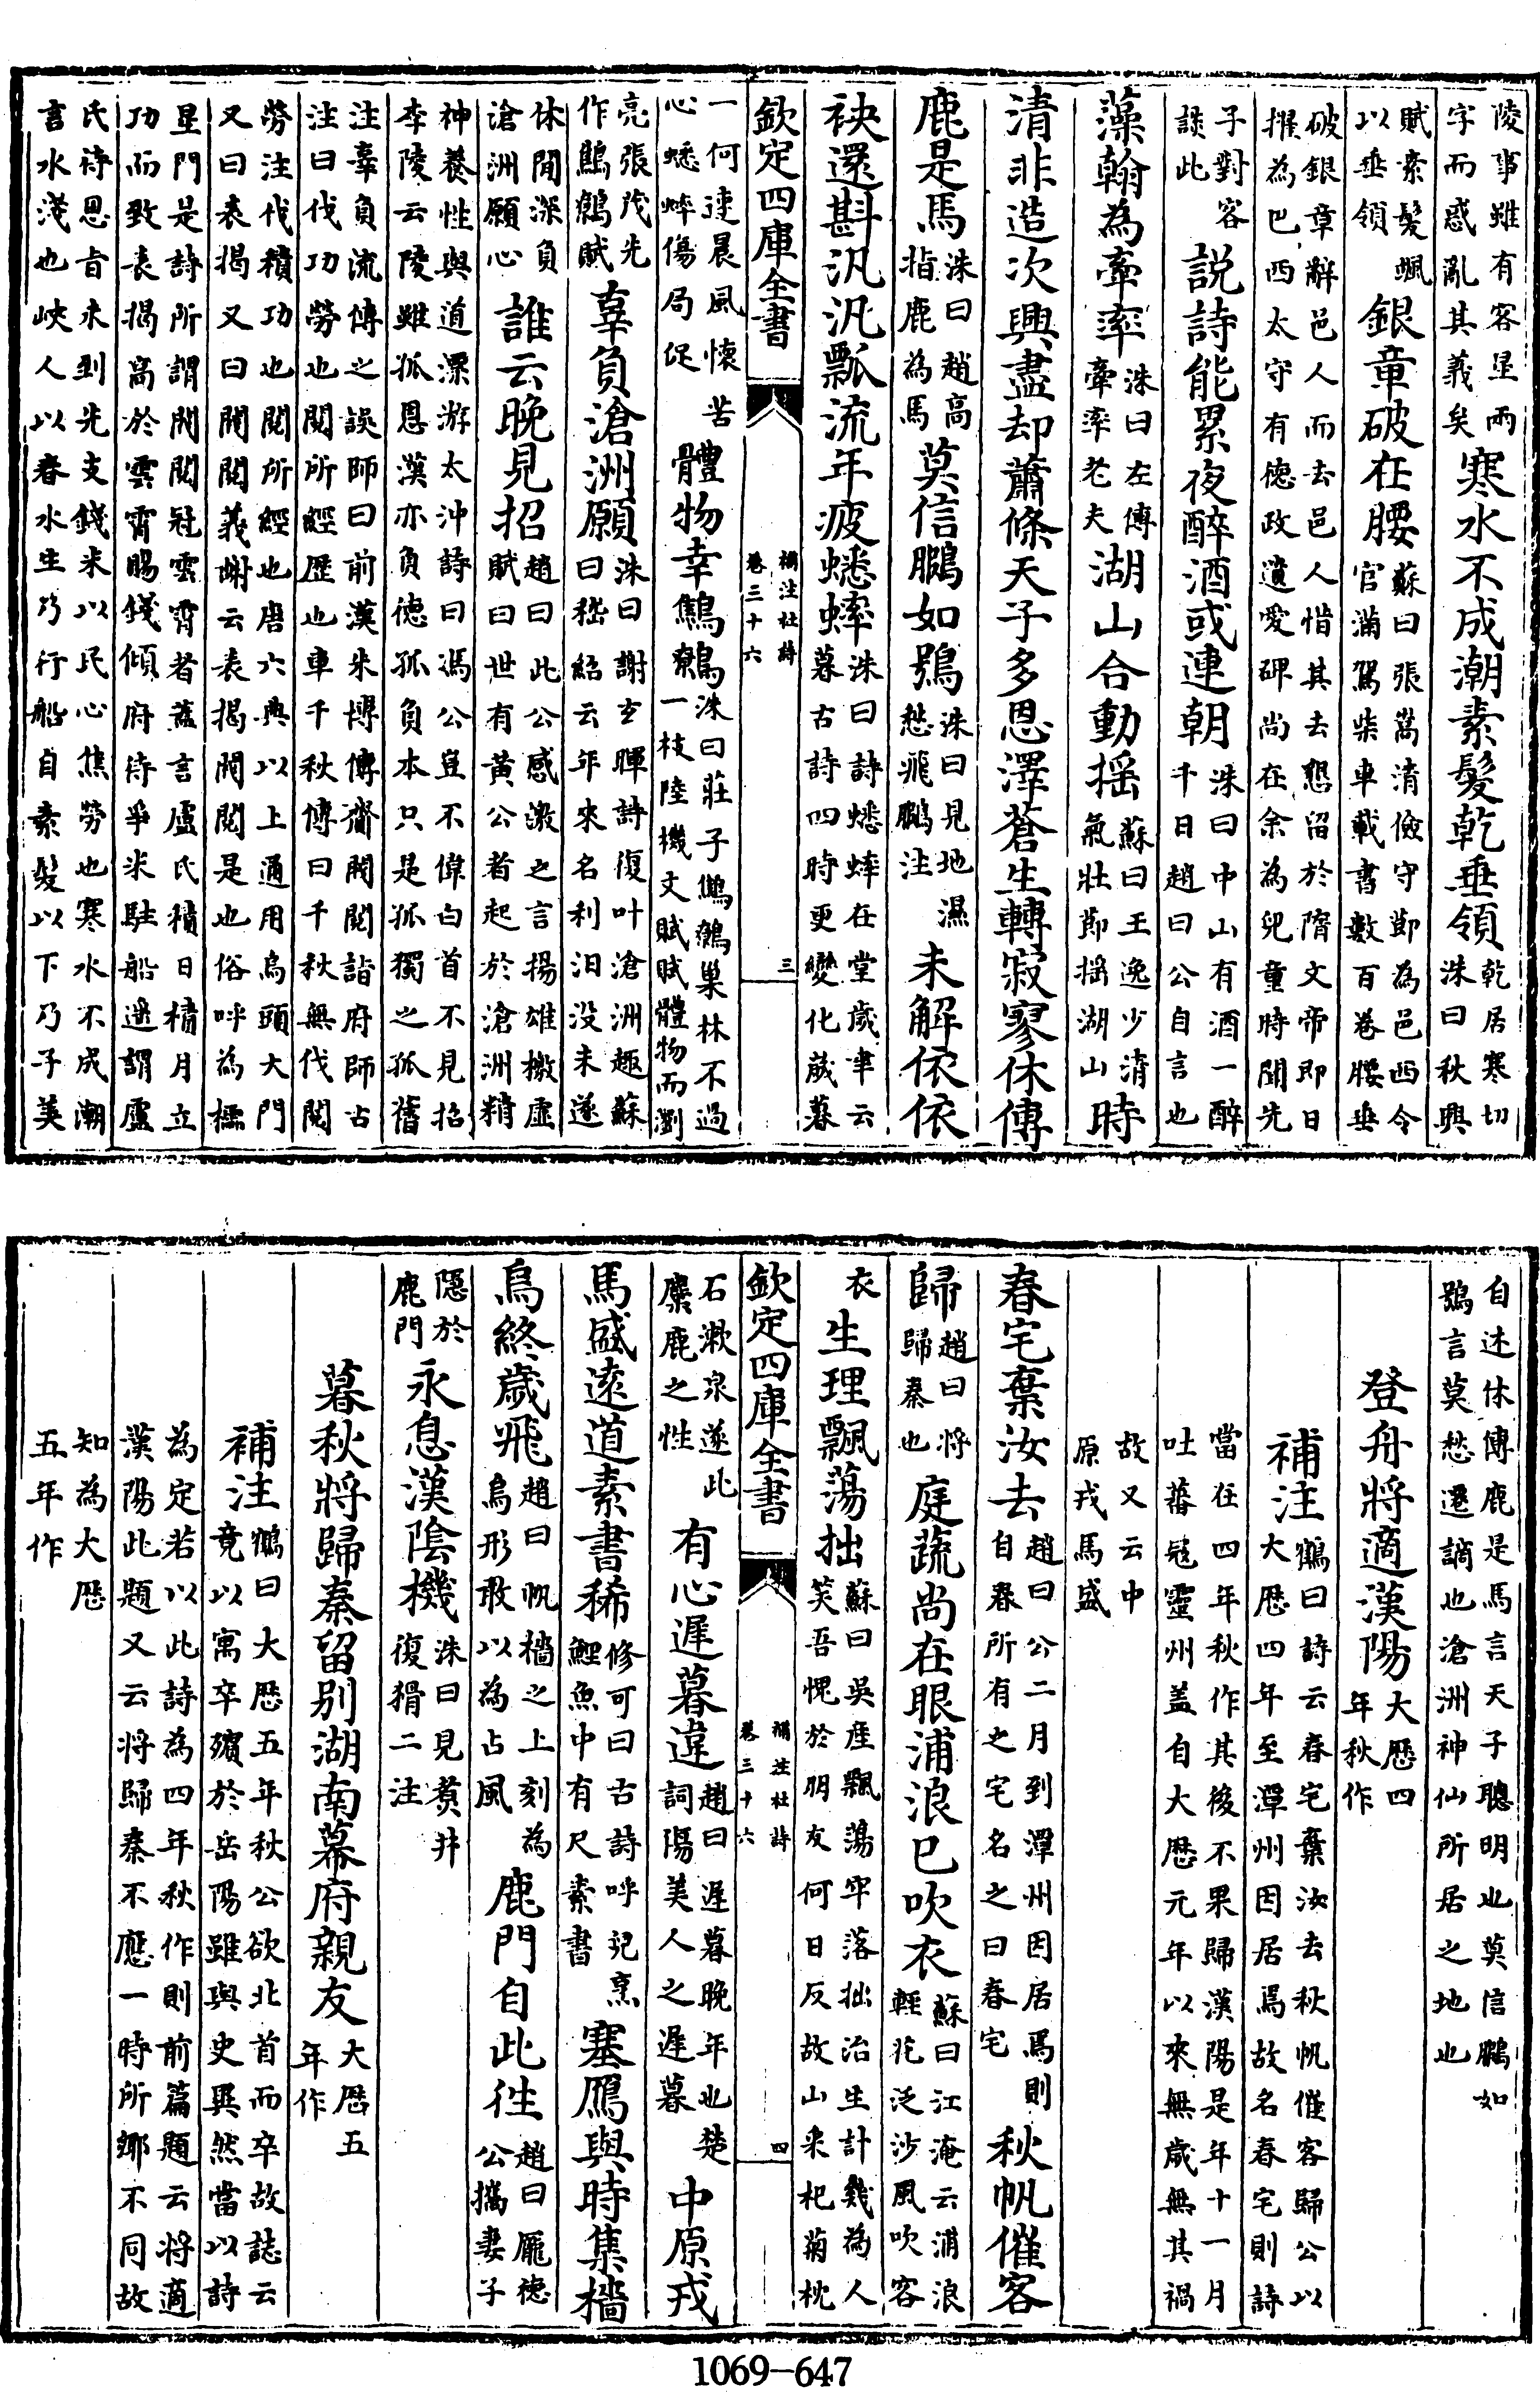 陵事雖有客星雨字而惑亂其義矣寒水不成潮素髮乾垂領乾居寒切洙曰秋興
賦素髮颯以垂領銀章破在腰蘇曰張嵩清儉守節為邑西令官滿駕柴車載書數百卷腰垂
破銀章辭邑人而去邑人惜其去懇留於隋文帝即日擢為巴西太守有德政遺愛碑尚在余為兒童時聞先
子對客談此説詩能累夜醉酒或連朝洙曰中山有酒一醉千日趙曰公自言也
藻翰為牽率洙曰左傳牽率老夫湖山合動揺蘇曰王逸少清氣壯節揺湖山時
清非造次興盡却蕭條天子多恩澤蒼生轉寂寥休傳
鹿是馬洙曰趙高指鹿為馬莫信鵩如鴞洙曰見地濕愁飛鵩注未解依依
袂還斟汎汎瓢流年疲蟋蟀洙曰詩蟋蟀在堂歲聿云暮古詩四時更變化歲暮
欽定四庫全書 補注杜詩 卷三十六 三
一何速晨風懷苦心蟋蟀傷局促體物幸鷦鷯洙曰莊子鷦鷯巢林不過一枝陸機文賦賦體物而瀏
亮張茂先作鷦鷯賦辜負滄洲願洙曰謝玄暉詩復叶滄洲趣蘇曰嵇紹云年來名利汩没未遂
休閒深負滄洲願心誰云晚見招趙曰此公感激之言揚雄檄虛賦曰世有黃公者起於滄洲精
神養性與道漂游太沖詩曰馮公豈不偉白首不見招李陵云陵雖孤恩漢亦負德孤負本只是孤獨之孤舊
注辜負流傳之誤師曰前漢朱博傳齎閥閱詣府師古注曰伐功勞也閱所經歷也車千秋傳曰千秋無伐閱
勞注伐積功也閱所經也唐六典以上通用烏頭大門又曰表揭又曰閥閱義謝云表揭閥閱是也俗呼為櫺
星門是詩所謂閥閱冠雲霄者蓋言盧氏積日積月立功而致表揭高於雲霄賜錢傾府待爭米駐船遥謂盧
氏待恩旨未到先支錢米以民心焦勞也寒水不成潮言水淺也峽人以春水生乃行船自素髮以下乃子美
自述休傳鹿是馬言天子聰明也莫信鵩如鴞言莫愁遷謫也滄洲神仙所居之地也
登舟將適漢陽大厯四年秋作
補注鶴曰詩云春宅棄汝去秋帆催客歸公以大厯四年至潭州因居焉故名春宅則詩
當在四年秋作其後不果歸漢陽是年十一月吐蕃冦靈州盖自大厯元年以來無歳無其禍
故又云中原戎馬盛
春宅棄汝去趙曰公二月到潭州因居焉則自春所有之宅名之曰春宅秋帆催客
歸趙曰將歸秦也庭蔬尚在眼浦浪已吹衣蘇曰江淹云浦浪輕花泛沙風吹客
衣生理飄蕩拙蘇曰吳産飄蕩牢落拙治生計幾為人笑吾愧於朋友何日反故山采杞菊枕
欽定四庫全書 補注杜詩 卷三十六 四
石漱泉遂此麋鹿之性有心遲暮違趙曰遲暮晚年也楚詞傷美人之遲暮中原戎
馬盛遠道素書稀修可曰古詩呼児烹鯉魚中有尺素書塞鴈與時集檣
烏終歲飛趙曰帆檣之上刻為烏形敢以為占風鹿門自此往趙曰龐德公攜妻子
隱於鹿門永息漢陰機洙曰見煑井復㨂二注
暮秋將歸秦留别湖南幕府親友大厯五年作
補注鶴曰大厯五年秋公欲北首而卒故誌云竟以寓卒殯於岳陽雖與史異然當以詩
為定若以此詩為四年秋作則前篇題云將適漢陽此題又云將歸秦不應一時所鄉不同故
知為大厯五年作
1069-647